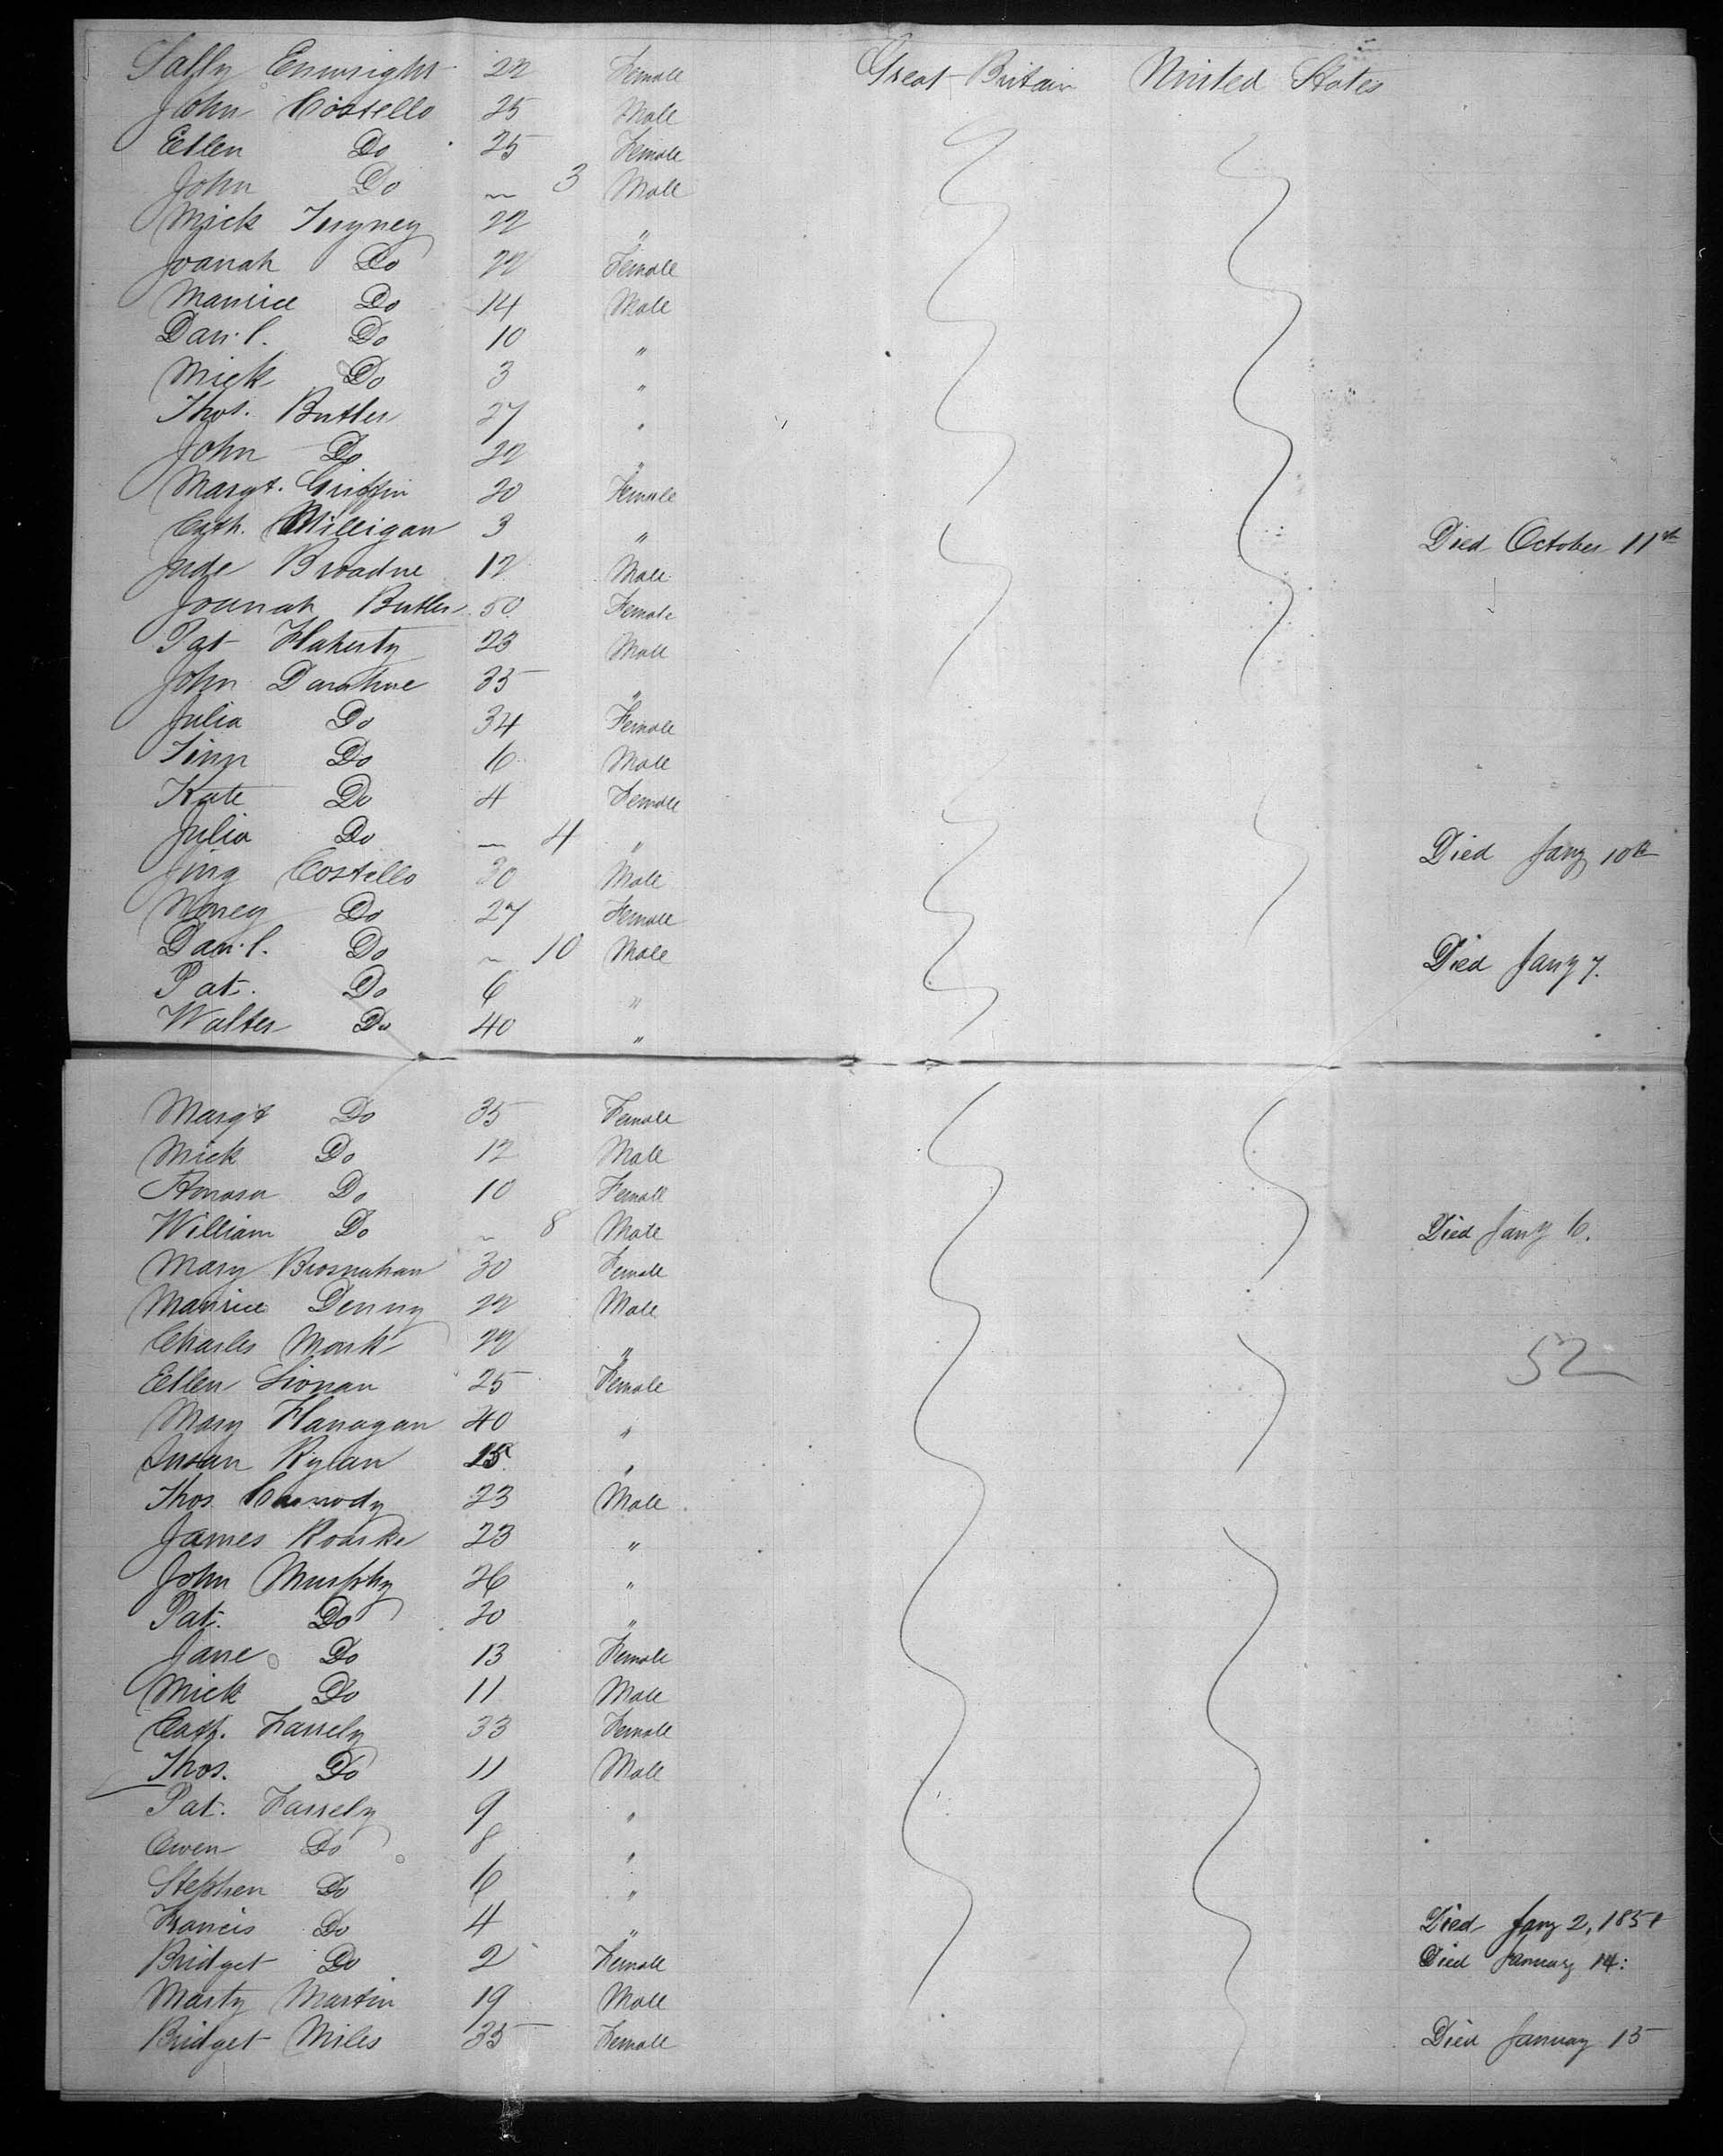 Sally Enwright 22 Female Great Britain United States
John Costello 25 Male
Ellen Do 25 Female
John Do ~ 3 Male
Mick 22 "
Joanah Do 22 Female
Maurice Do 14 Male
Dan.l. Do 10 "
Mick Do 3 "
Thos. Butler 27 "
John Do 22 "
Margt. Griffin 20 Female
Cath. Milligan 3 " Died October 11th
Jude Broadne 12 Male
Joanah Butler 50 Female
Pat Flaherty 23 Male
John Donahue 35 "
Julia Do 34 Female
Timn Do 6 Male
Kate Do 4 Female
Julia Do ~ 4 " Died Jany 10th
Costello 30 Male
Do 27 Female
Dan.l. Do ~ 10 Male Died Jany 7.
Pat. Do 6 "
Walter Do 40 "
Margt Do 35 Female
Mick Do 12 Male
Honora Do 10 Female
William Do ~ 8 Male Died Jany 6.
Mary Brosnahan 30 Female
Maurice Denny 22 Male
Charles Mark 22 "
52
Ellen 25 Female
Mary Flanagan 40 "
Susan Rylan 15 "
Thos Carmody 23 Male
James Roarke 23 "
John Murphy 26 "
Pat. Do 20 "
Jane Do 13 Female
Mick Do 11 Male
Cath. Farrely 33 Female
Thos. Do 11 Male
Pat. Farrely 9 "
Owen Do 8 "
Stephen Do 6 "
Francis Do 4 " Died Jany 2, 1851
Bridget Do 2 Female Died January 14:
Marty Martin 19 Male
Bridget Miles 35 Female Died January 15